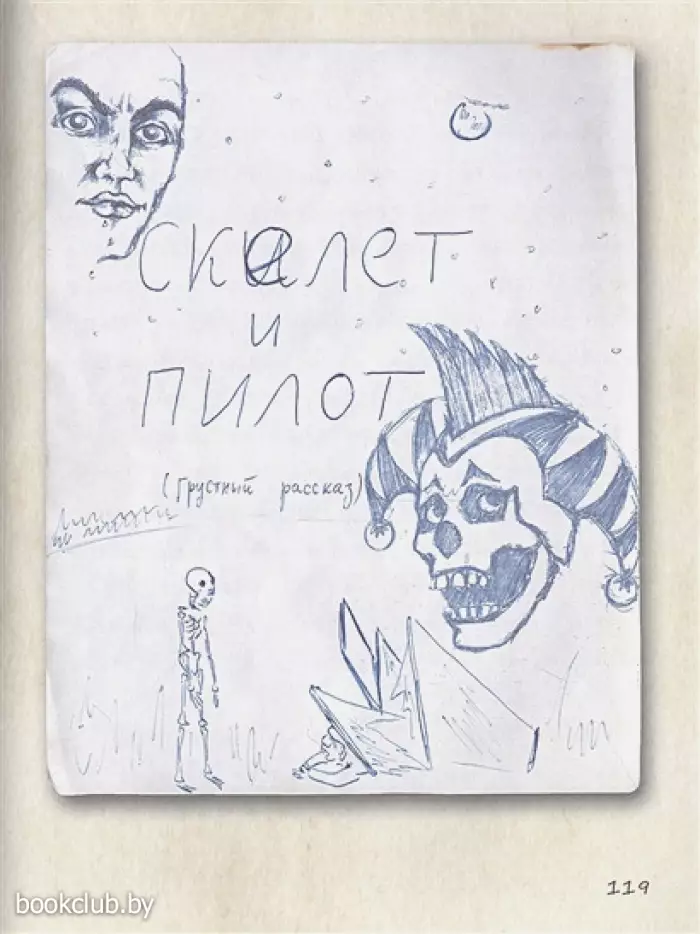 СКЕЛЕТ
И
ПИЛОТ
(Грустный рассказ)
119
bookclub.by